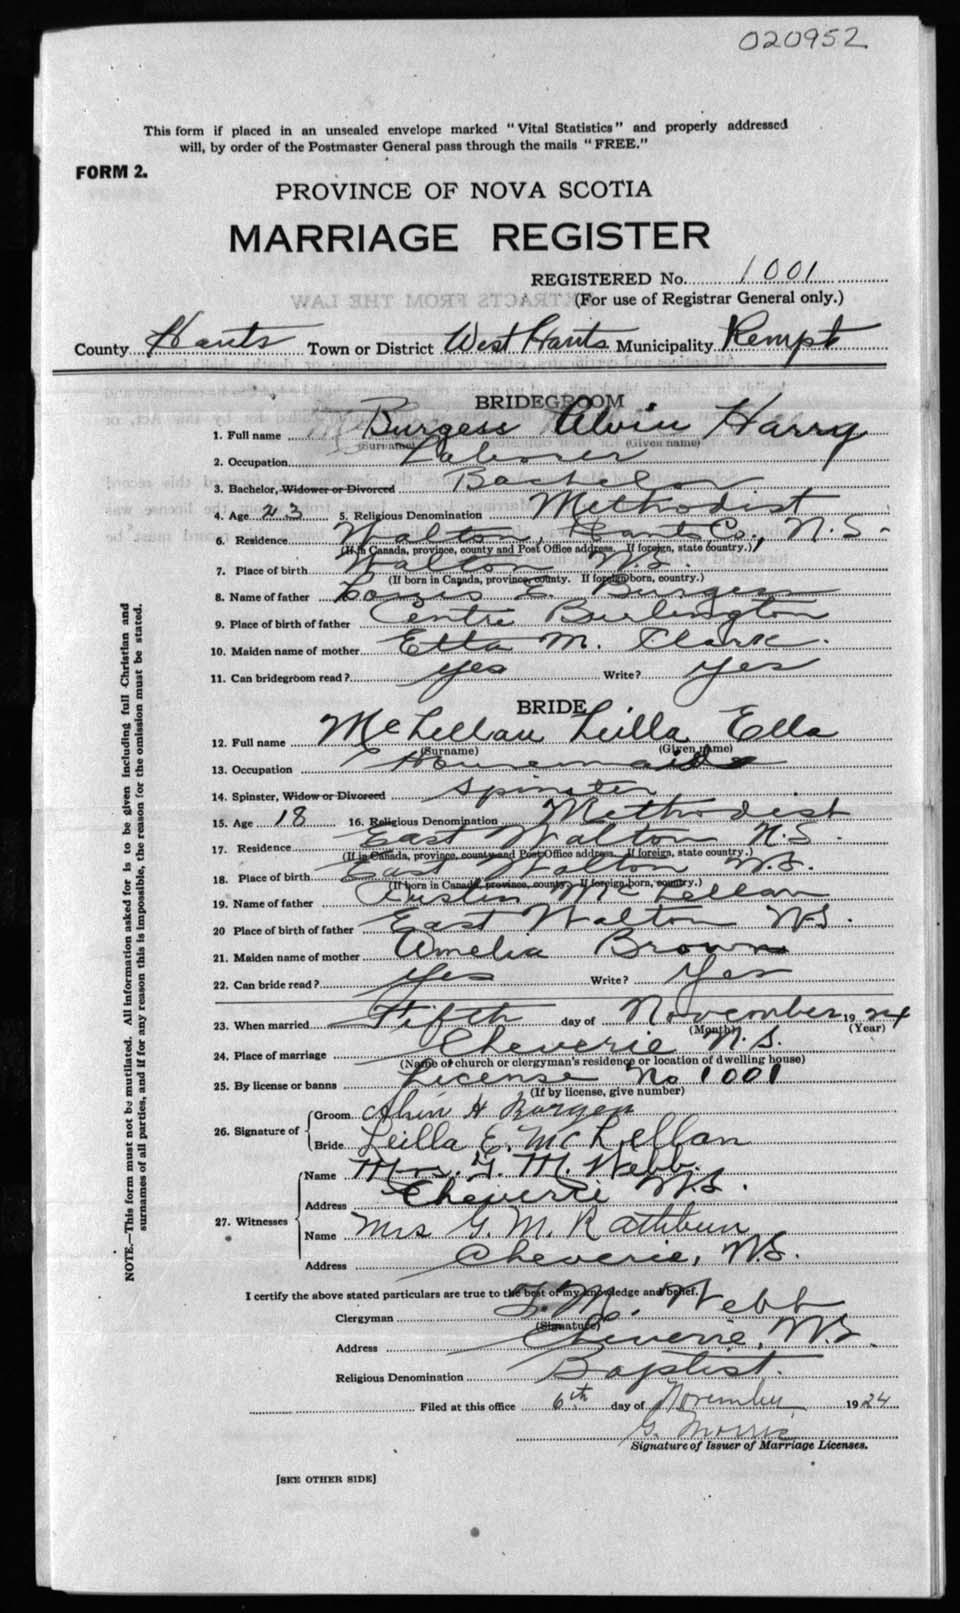 020952
This form if placed in an unsealed envelope marked "Vital Statistics" and properly addressed
will, by order of the Postmaster General pass through the mails "FREE."
FORM 2.
PROVINCE OF NOVA SCOTIA
MARRIAGE REGISTER
REGISTERED No. 1001
(For use of Registrar General only.)
County Hants Town or District West Hants Municipality Kempt
BRIDEGROOM
1. Full name Burgess Alvin Harry
(Surname) (Given name)
2. Occupation Laborer
3. Bachelor, Widower or Divorced Bachelor
4. Age 23 5. Religious Denomination Methodist
6. Residence Walton, Hants Co., N.S.
(If in Canada, province, county and Post Office address. If foreign, state country.)
7. Place of birth Walton N.S.
(If born in Canada, province, county. If foreign born, country.)
8. Name of father Louis E. Burgess
9. Place of birth of father Centre Burlington
10. Maiden name of mother Etta M. Clark.
11. Can bridegroom read? yes Write? yes
BRIDE
12. Full name McLellan Leilla Ella
(Surname) (Given name)
13. Occupation Housemaid
14. Spinster, Widow or Divorced Spinster
15. Age 18 16. Religious Denomination Methodist
17. Residence East Walton N.S.
(If in Canada, province, county and Post Office address. If foreign, state country.)
18. Place of birth East Walton N.S.
(If born in Canada, province, county. If foreign born, country.)
19. Name of father Austin McLellan
20 Place of birth of father East Walton N.S.
21. Maiden name of mother Amelia Brown
22. Can bride read? Yes Write? Yes
23. When married Fifth day of November 1924
(Month) (Year)
24. Place of marriage Cheverie N.S.
(Name of church or clergyman's residence or location of dwelling house)
25. By license or banns License No 1001
(If by license, give number)
26. Signature of Groom Alvin H Burgess
Bride Leilla E. McLellan
27. Witnesses Name Mrs. F. M. Webb.
Address Cheverie N.S.
Name Mrs G. M. Rathbun
Address Cheverie, N.S.
I certify the above stated particulars are true to the best of my knowledge and belief.
Clergyman F. M. Webb
(Signature)
Address Cheverie, N.S.
Religious Denomination Baptist.
Filed at this office 6th day of November 1924
G. Morris
Signature of Issuer of Marriage Licenses.
[SEE OTHER SIDE]
NOTE.—This form must not be mutilated. All information asked for is to be given including full Christian and
surnames of all parties, and if for any reason this is impossible, the reason for the omission must be stated.